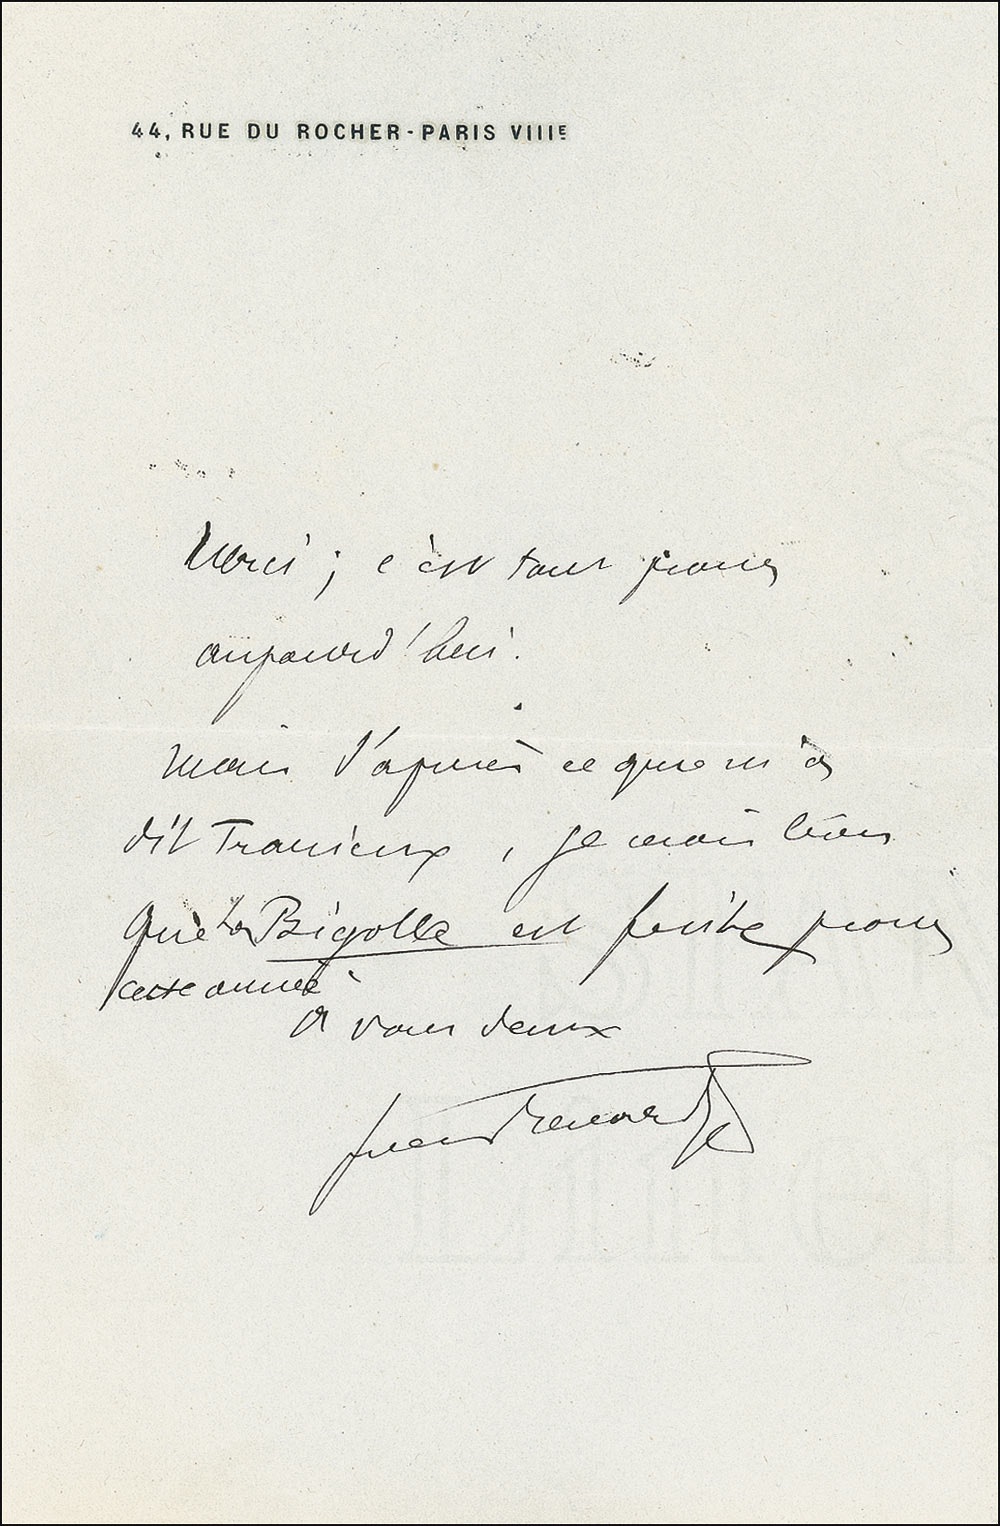 44, RUE DU ROCHER - PARIS VIIIE
Merci ; c'est tout pour
aujourd'hui.
Mais d'après ce que m'a
dit Tranieux, je crois bien
que la Bigotte est fruite pour
cette année
A vous deux
Jules Renard